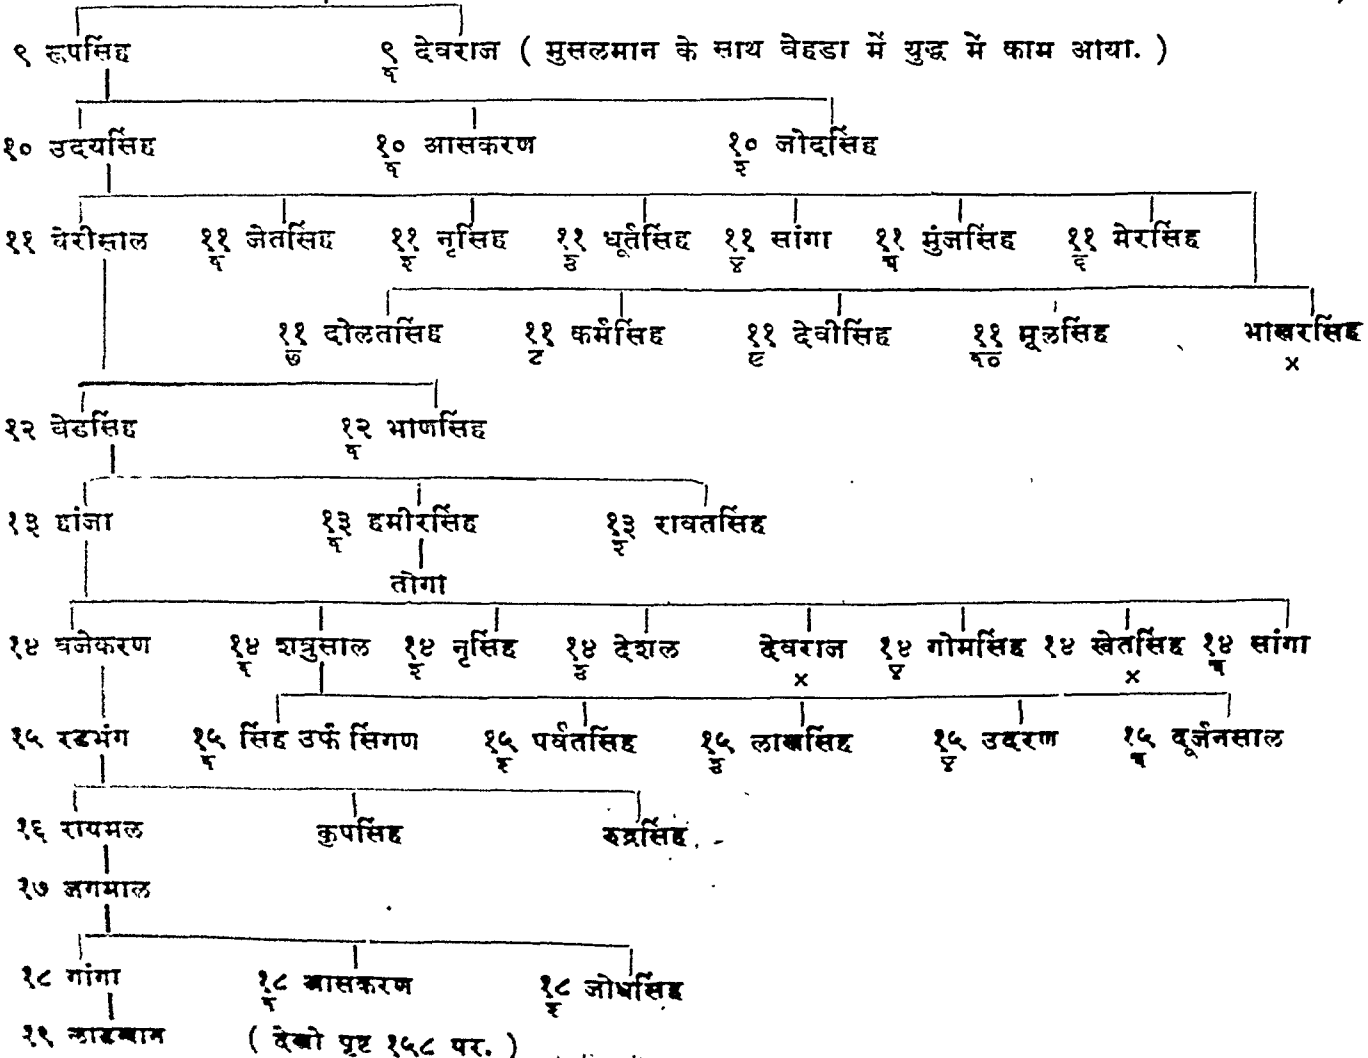 ९ रूपसिंह ९/१ देवराज ( मुसलमान के साथ वेहडा में युद्ध में काम आया. )
१० उदयसिंह १०/१ आसकरण १०/२ जोदसिंह
११ वेरीसाल ११/१ जेतसिंह ११/२ नृसिंह ११/३ धूर्तसिंह ११/४ सांगा ११/५ मुंजसिंह ११/६ मेरसिंह
११/७ दोलतसिंह ११/८ कर्मसिंह ११/९ देवीसिंह ११/१० मूलसिंह भाखरसिंह
×
१२ वेडसिंह १२/१ भाणसिंह
१३ हांजा १३/१ हमीरसिंह १३/२ रावतसिंह
तोगा
१४ वजेकरण १४/१ शत्रुसाल १४/२ नृसिंह १४/३ देशल देवराज १४/४ गोमसिंह १४ खेतसिंह १४/५ सांगा
× ×
१५ रडभंग १५/१ सिंह उर्फ सिंगण १५/२ पर्वतसिंह १५/३ लाखसिंह १५/४ उदरण १५/५ दूर्जनसाल
१६ रायमल कुपसिंह रुद्रसिंह
१७ जगमाल
१८ गांगा १८/१ आसकरण १८/२ जोधसिंह
१९ लाडखान ( देखो पृष्ट १५८ पर. )